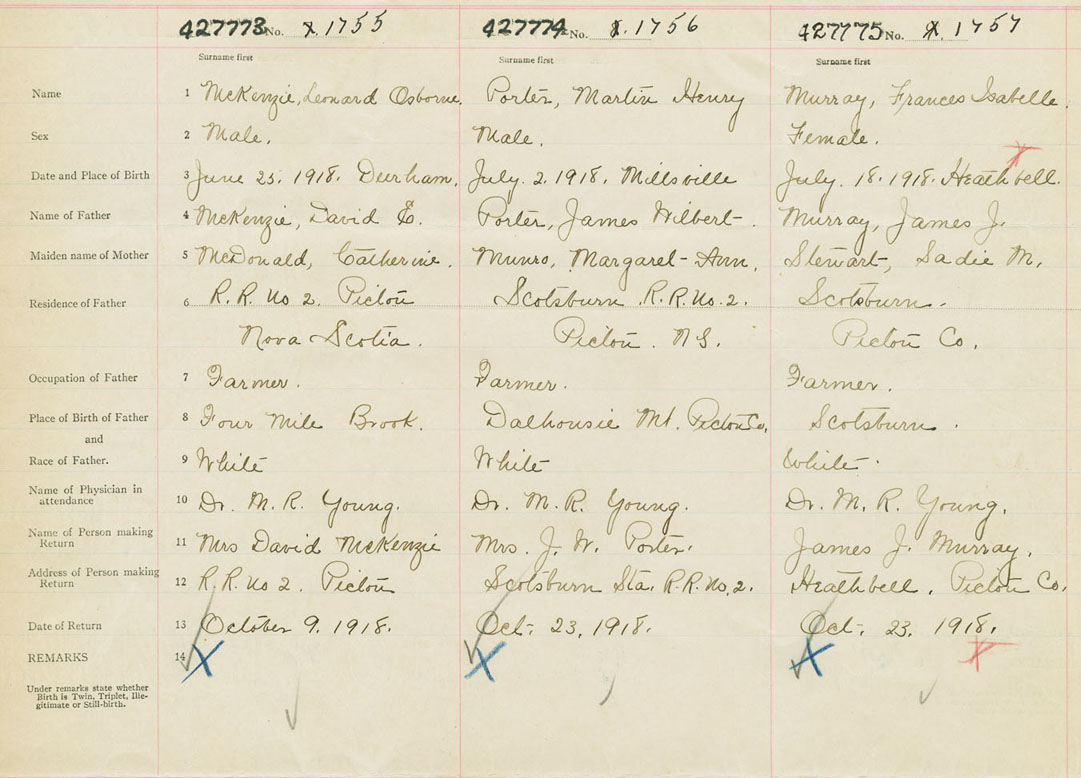 427773 No. X. 1755 427774 No. X. 1756 427775 No. X. 1757
Surname first Surname first Surname first
Name 1 McKenzie, Leonard Osborne. Porter, Martin Henry Murray, Frances Isabelle.
Sex 2 Male. Male. Female.
Date and Place of Birth 3 June 25. 1918. Durham. July. 2. 1918. Millsville July. 18. 1918. Heathbell.
Name of Father 4 McKenzie, David E. Porter, James Wilbert. Murray, James J.
Maiden name of Mother 5 McDonald, Catherine. Munro, Margaret-Ann. Stewart, Sadie M.
Residence of Father 6 R.R. No 2. Pictou Scotsburn R.R. No. 2. Scotsburn.
Nova Scotia. Pictou. N.S. Pictou Co.
Occupation of Father 7 Farmer. Farmer. Farmer.
Place of Birth of Father 8 Four Mile Brook. Dalhousie Mt. Pictou Co. Scotsburn.
and
Race of Father. 9 White White White.
Name of Physician in
attendance 10 Dr. M. R. Young. Dr. M. R. Young. Dr. M. R. Young.
Name of Person making
Return 11 Mrs David McKenzie Mrs. J. W. Porter. James J. Murray.
Address of Person making
Return 12 R.R. No 2. Pictou Scotsburn Sta. R.R. No. 2. Heathbell. Pictou Co.
Date of Return 13 October 9. 1918. Oct. 23, 1918. Oct. 23. 1918.
REMARKS 14
Under remarks state whether
Birth is Twin, Triplet, Ille-
gitimate or Still-birth.